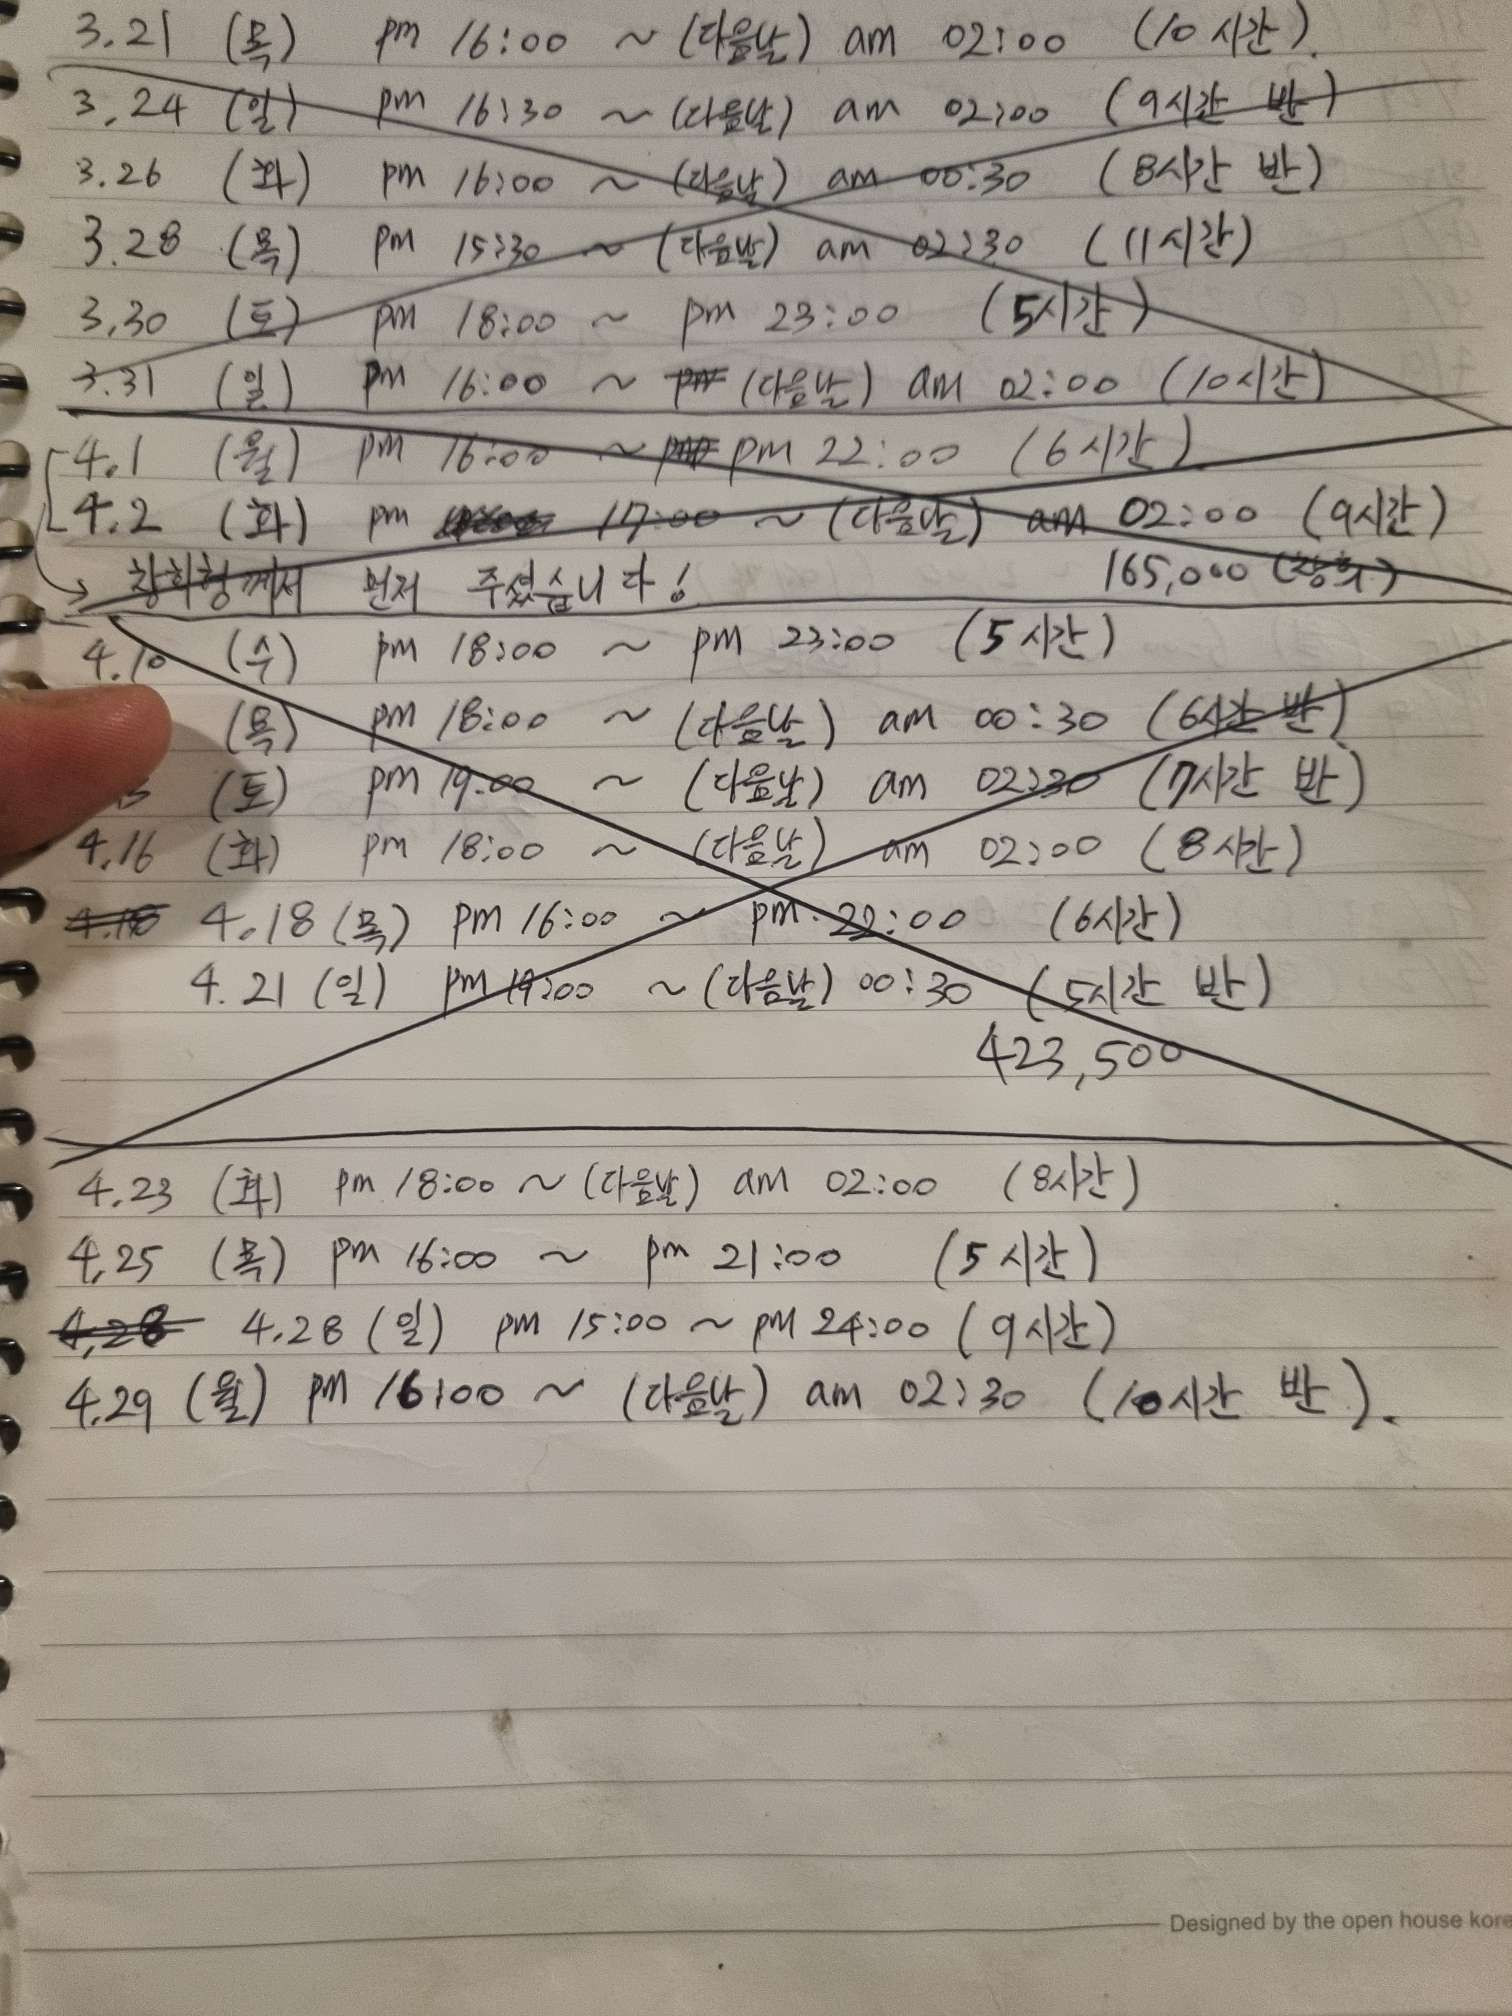 3.21 (목) pm 16:00 ~ (다음날) am 02:00 (10시간).
3.24 (일) pm 16:30 ~ (다음날) am 02:00 (9시간 반)
3.26 (화) pm 16:00 ~ (다음날) am 00:30 (8시간 반)
3.28 (목) pm 15:30 ~ (다음날) am 02:30 (11시간)
3.30 (토) pm 18:00 ~ pm 23:00 (5시간)
3.31 (일) pm 16:00 ~ pm (다음날) am 02:00 (10시간)
4.1 (월) pm 16:00 ~ pm pm 22:00 (6시간)
4.2 (화) pm 17:00 ~ (다음날) am 02:00 (9시간)
창희형께서 먼저 주셨습니다! 165,000 (창희)
4.10 (수) pm 18:00 ~ pm 23:00 (5시간)
(목) pm 18:00 ~ (다음날) am 00:30 (6시간 반)
(토) pm 19:00 ~ (다음날) am 02:30 (7시간 반)
4.16 (화) pm 18:00 ~ (다음날) am 02:00 (8시간)
4.18 4.18 (목) pm 16:00 ~ pm 22:00 (6시간)
4.21 (일) pm 19:00 ~ (다음날) 00:30 (5시간 반)
423,500
4.23 (화) pm 18:00 ~ (다음날) am 02:00 (8시간)
4.25 (목) pm 16:00 ~ pm 21:00 (5시간)
4.28 4.28 (일) pm 15:00 ~ pm 24:00 (9시간)
4.29 (월) pm 16:00 ~ (다음날) am 02:30 (10시간 반).
Designed by the open house kore